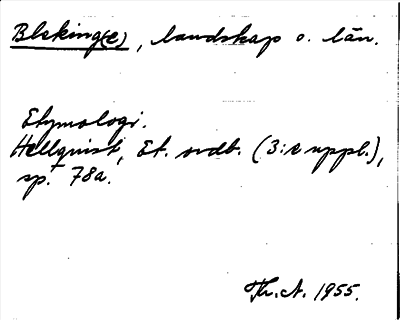 Blekinge(e), landskap o. län.
Etymologi.
Hellquist, Et. ordb. (3:e uppl.),
sp. 78a.
Th.A. 1955.